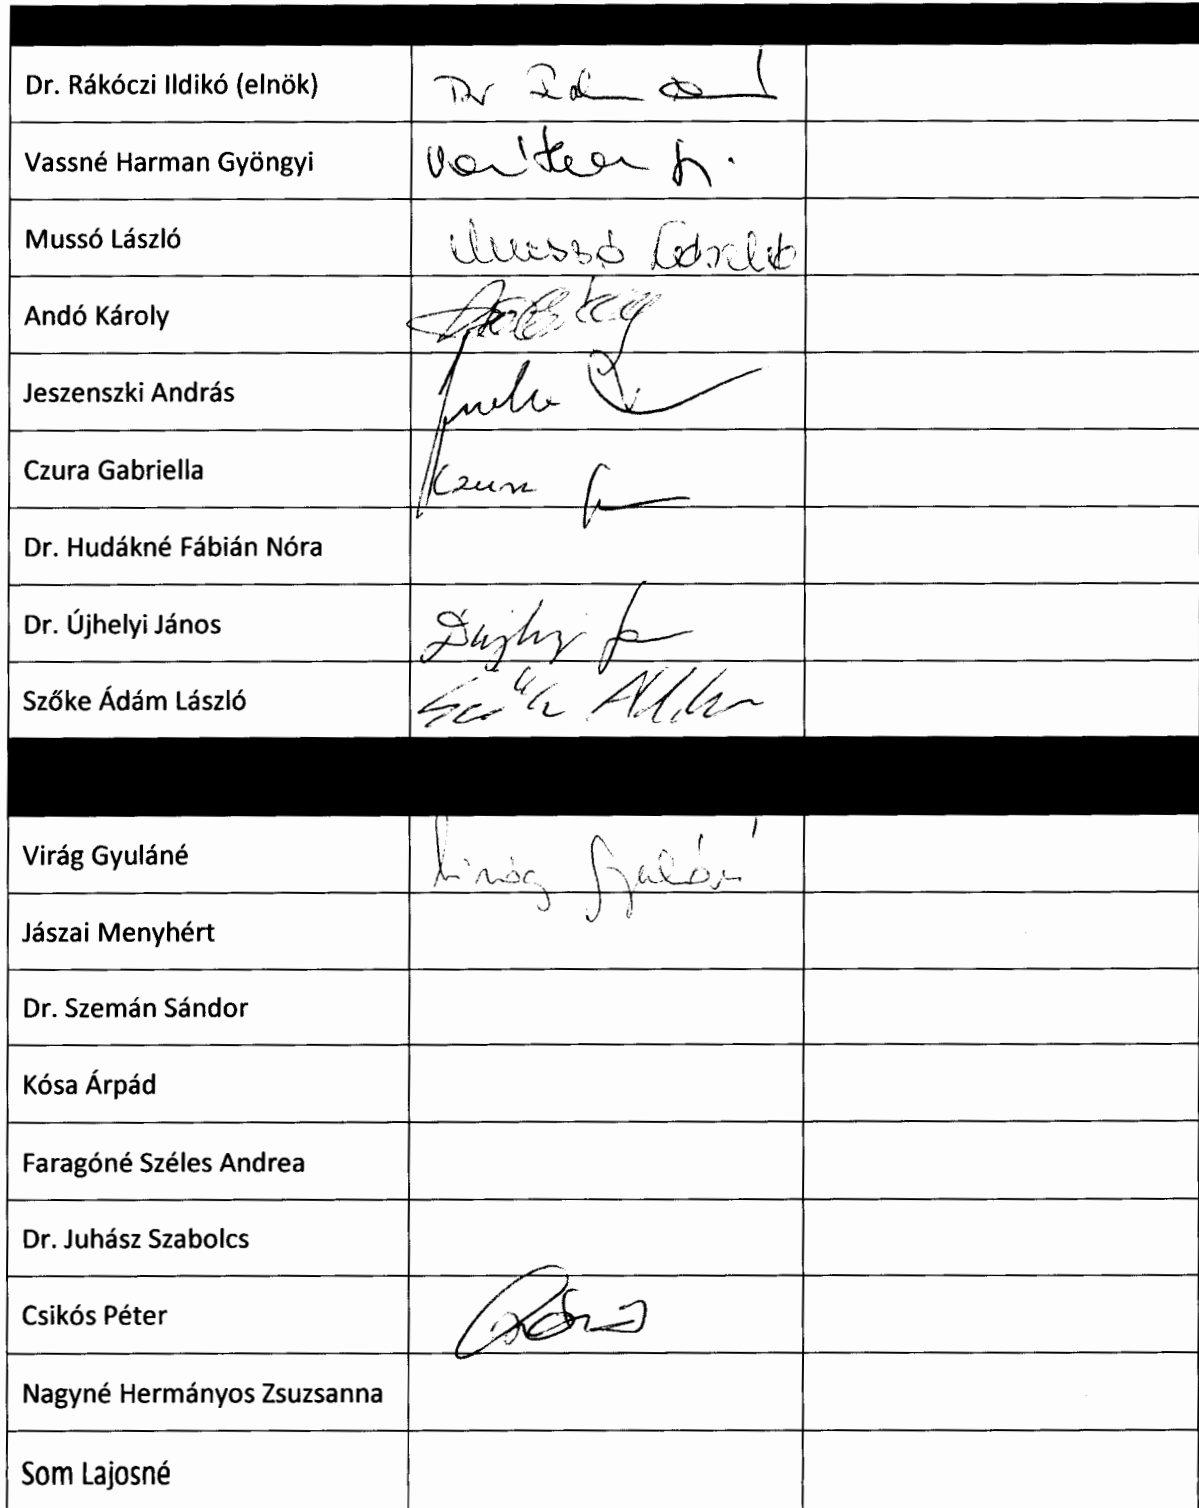 Dr. Rákóczi Ildikó (elnök)
Vassné Harman Gyöngyi
Mussó László Mussó László
Andó Károly
Jeszenszki András
Czura Gabriella
Dr. Hudákné Fábián Nóra
Dr. Újhelyi János
Szőke Ádám László
Virág Gyuláné Virág Gyuláné
Jászai Menyhért
Dr. Szemán Sándor
Kósa Árpád
Faragóné Széles Andrea
Dr. Juhász Szabolcs
Csikós Péter
Nagyné Hermányos Zsuzsanna
Som Lajosné